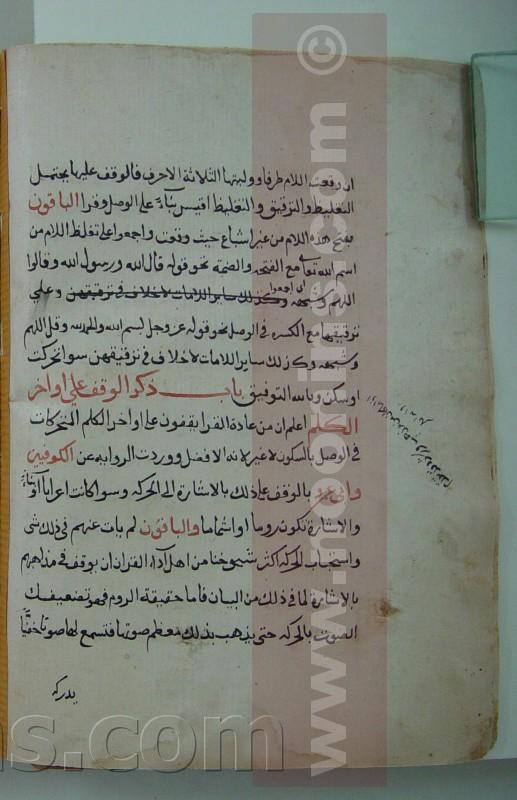 ان وقعت اللام طرفا ووليتها الثلاثة الاحرف فالوقف عليها يحتمل
التغليظ والترقيق والتغليظ اقيس بناء على الوصل وقرا الباقون
بفتح هذه اللام من غير اشباع حيث وقعت واجمعوا على تغلظ اللام من
اسم الله تعالى مع الفتحه والضمة نحو قوله قال الله ورسول الله وقالوا
اللهم وشبهه وكذلك ساير اللامات لاخلاف في ترقيقهن وعلي
ان اجمعوا
ترقيقها مع الكسره في الوصل نحو قوله عز وجل بسم الله والحمد لله وقل اللهم
وشبهه وكذلك ساير اللامات لاخلاف في ترقيقهن سوا تحركت
او سكن وبالله التوفيق باب ذكر الوقف علي اواخر
الكلم اعلم ان من عادة القرا يقفون علي اواخر الكلم المتحركات
في الوصل بالسكون لا غير لانه الافضل ووردت الروايه عن الكوفيين
وابي عمرو بالوقف على ذلك بالاشارة الى الحركه وسوا كانت اعرابا او بناء
والاشارة تكون روما او اشماما والباقون لم يات عنهم في ذلك شي
واستحباب اكثر شيوخنا من اهل اداء القران ان يوقف في مذاهبهم
بالاشارة لما في ذلك من البيان فاما حقيقة الروم فهو تضعيفك
الصوت بالحركه حتى يذهب بذلك معظم صوتها فتسمع لها صوتا خفيا
يدركه
www.moorings.com ©
ns.com